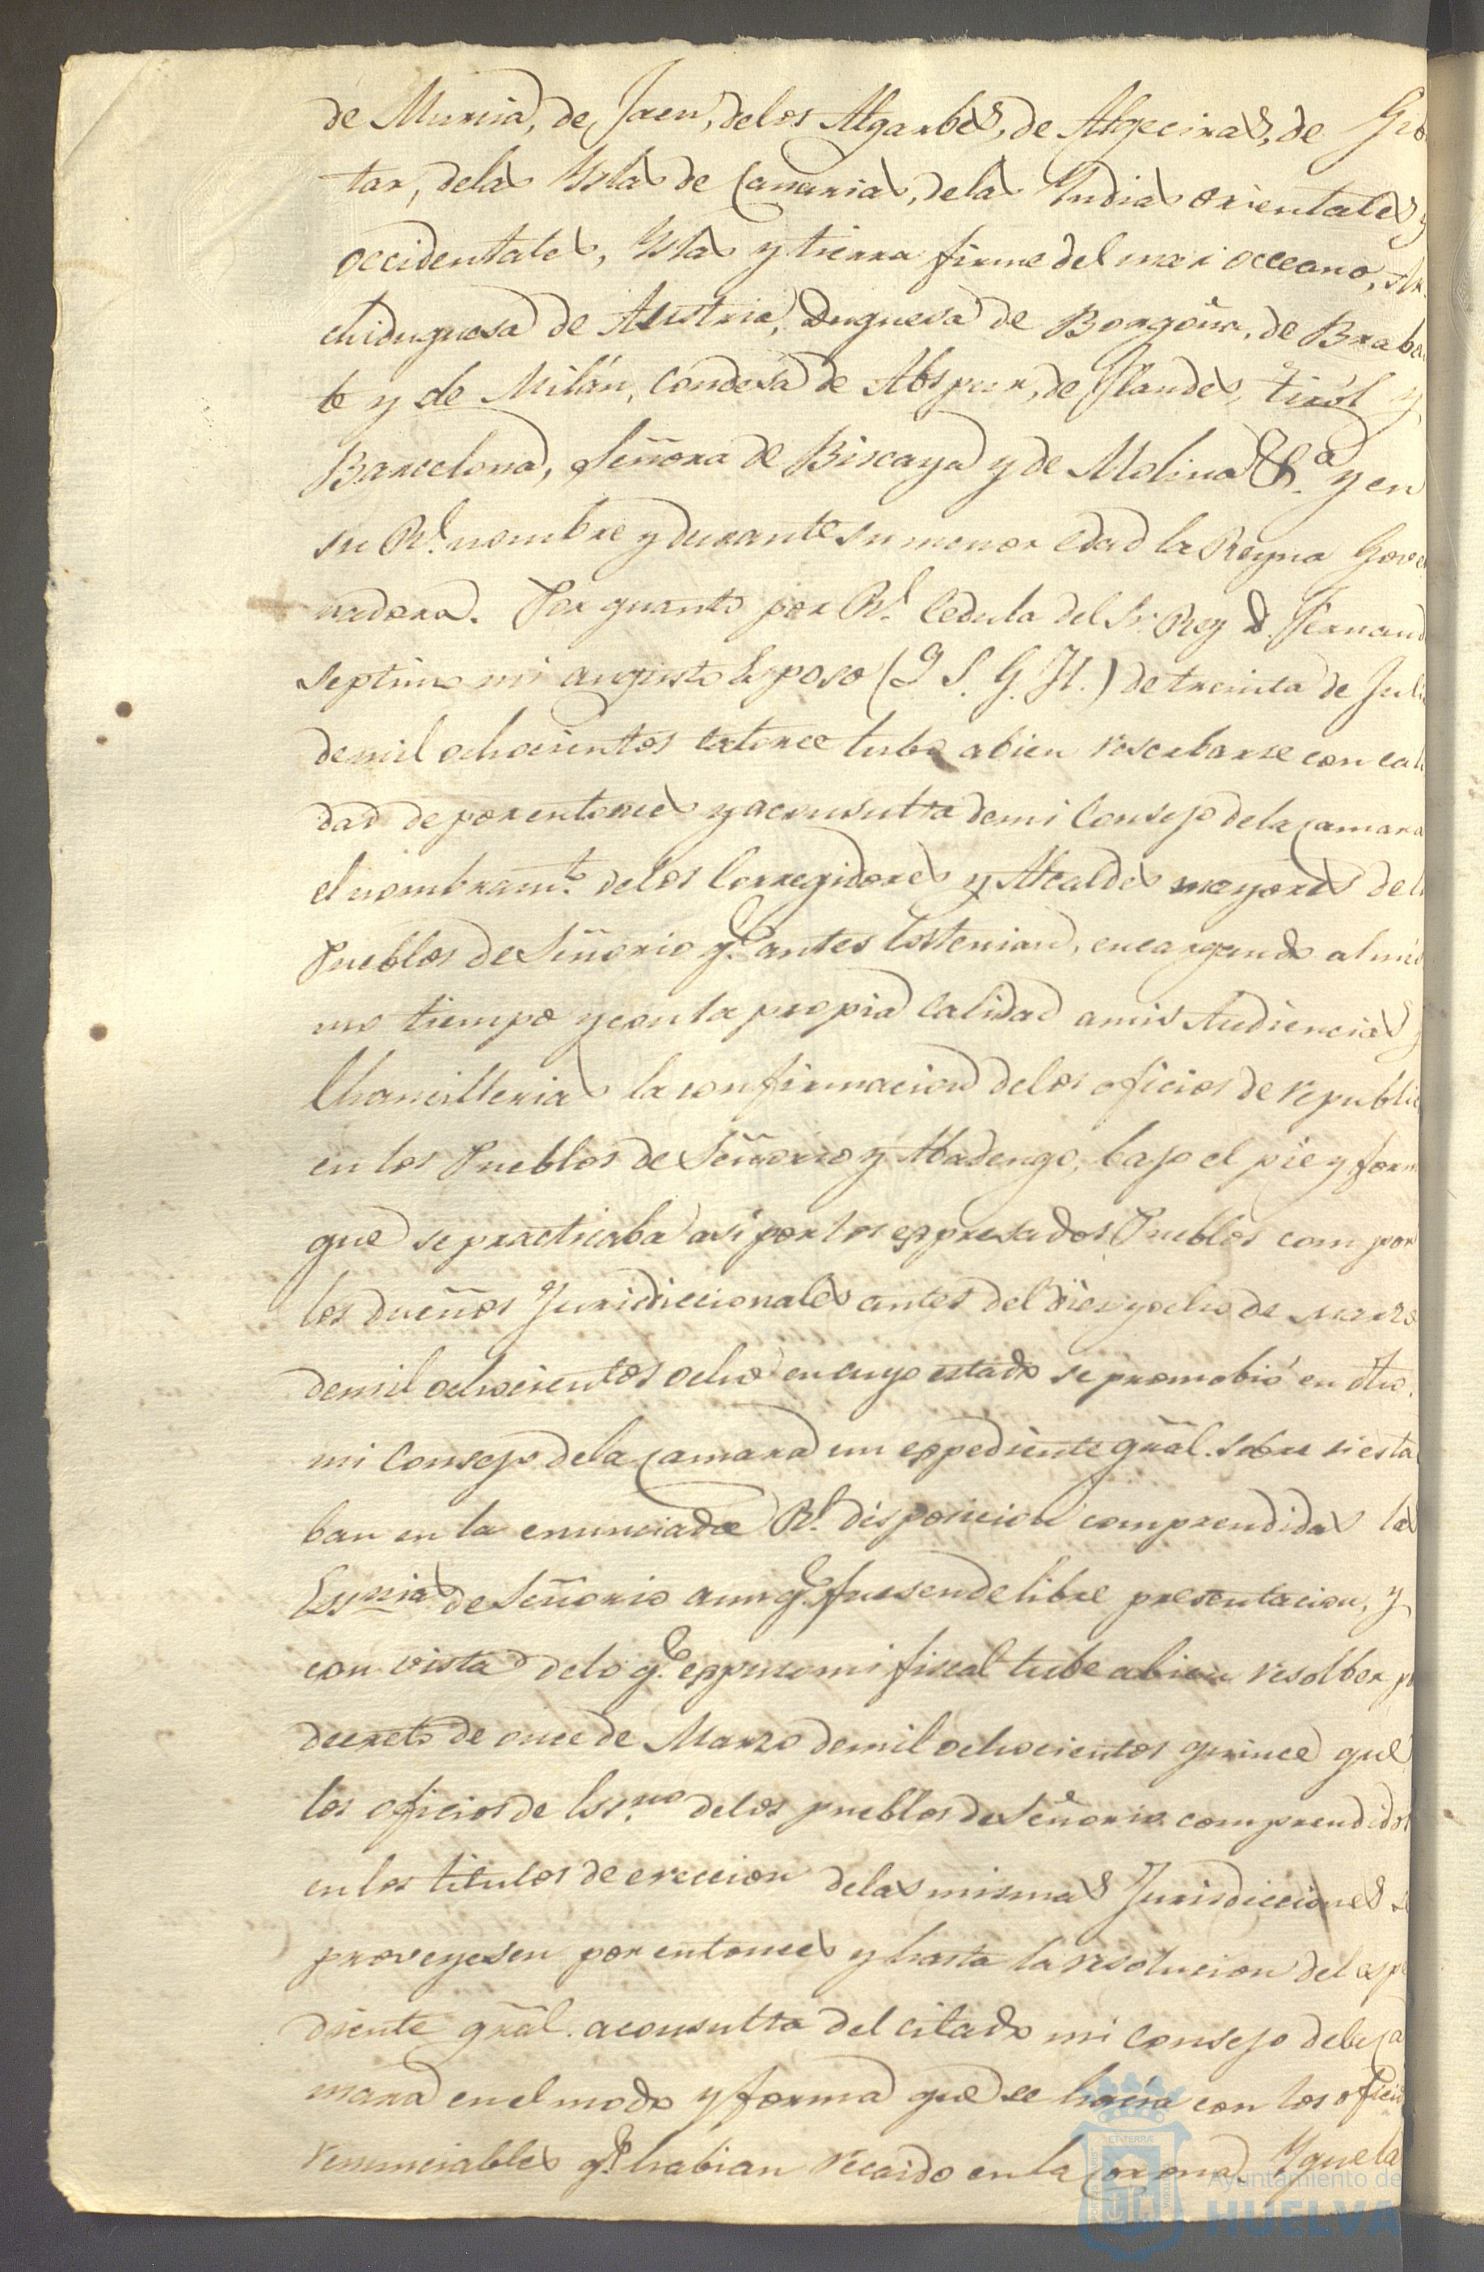 de Murcia, de Jaen, delos Algarbes, de Algeciras, de Gib
tar, delas Yslas de Canarias, delas Yndias orientales y
occidentales, Yslas y tierra firme del mar occeano, Ar
chiduquesa de Austria, Duquesa de Borgoña, de Braban
te y de Milán, Condesa de Abspur, de Flandes, Tiról y
Barcelona, Señora de Biscaya y de Molina &.a y en
su Rl. nombre y durante su menor edad la Reyna Gover
nadora. Por quanto por Rl. Cedula del Sr. Rey D. Fernand
septimo mi augusto Esposo (Q. S. G. H.) de treinta de Juli
demil ochocientos catorce tubo abien reserbarse con cali
dad de porentonces y aconsulta demi Consejo dela Camara
el nombramto. delos Corregidores y Alcaldes mayores del
Pueblos de Señorio qe. antes los tenian, encargando al mis
mo tiempo y con la propia calidad amis Audiencias y
Chancillerias la confirmacion delos oficios de republic
en los Pueblos de Señorio y Abadengo, bajo el pie y form
que se practicaba asi por los expresados Pueblos com por
los dueños Jurisdiccionales antes del diez y ocho de marzo
demil ochocientos ocho en cuyo estado se promobió en dho.
mi Consejo dela Camara un expediente gral. sobre si esta
ban en la enunciada Rl. disposicion comprendidas las
Essnias de Señorio aunqe. fuesen de libre presentacion, y
con vista delo qe. expuso mi fiscal tube abien resolber p
decreto de once de Marzo demil ochocientos quince que
los oficios de Essno delos pueblos de Señorio comprendidos
en los titulos de ereccion delas mismas Jurisdicciones se
proveyesen por entonces y hasta la resolucion del espe
diente gral. aconsulta del citado mi Consejo dela Ca
mara en el modo y forma que se hacia con los oficio
renunciables qe. habian recaido en la Corona. Y que la
Ayuntamiento de
HUELVA